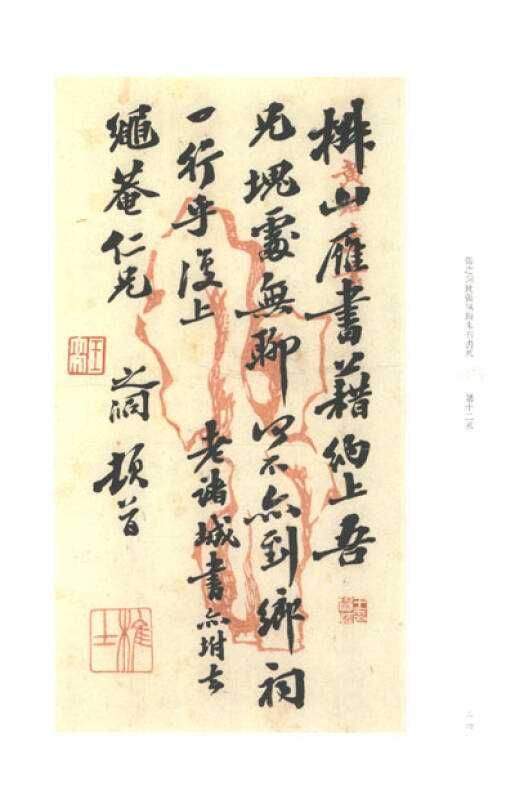 山雁書藉納上吾
兄塊處無聊 不亦到鄉祠
一行專復上
老諸城書亦坿去
繩菴仁兄
之洞 頓首
張之洞致張佩綸未刊書札 第十二札